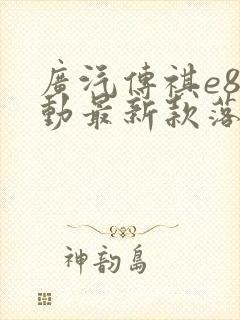 廣汽傳祺e8
動最新款落
神韵島